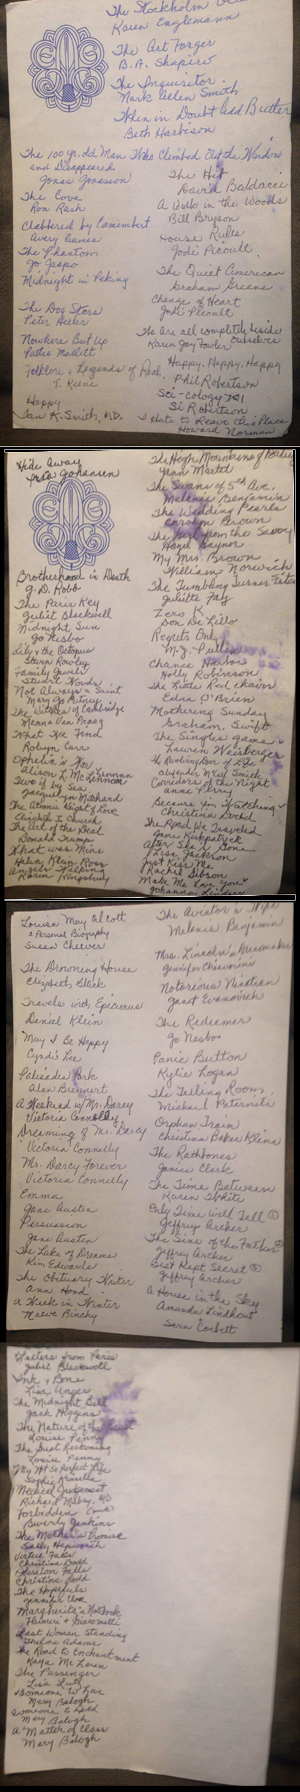 The Stockholm
Karen Englemann
The Art Forger
B.A. Shapiro
The Inquisitor
Mark Allen Smith
When in Doubt Add Butter
Beth Harbison
The 100 yr. old Man Who Climbed Out the Window
and Disappeared
Jonas Jonasson
The Cove
Ron Rash
Clobbered by Camembert
Avery Aames
The Phantom
Jo Nesbo
Midnight in Peking
The Dog Stars
Peter Heller
Nowhere But Up
Pattie Mallett
Folklore & Legends of Rock.
T. Keene
Happy
Ian K. Smith, MD.
The Hit
David Baldacci
A Walk in the Woods
Bill Bryson
House Rules
Jodi Picoult
The Quiet American
Graham Greene
Change of Heart
Jodi Picoult
We Are all completely beside
Karen Joy Fowler Ourselves
Happy, Happy, Happy
Phil Robertson
Sci-cology 101
Si Robertson
I Hate to Leave this Place
Howard Norman
Hide Away
Iris Johansen
Brotherhood in Death
J.D. Robb
The Paris Key
Juliet Blackwell
Midnight Sun
Jo Nesbo
Lily & the Octopus
Steven Rowley
Family Jewels
Stuart Woods
Not Always a Saint
Mary Jo Putney
The Witches of Cambridge
Menna Van Praag
What We Find
Robyn Carr
Ophelia's Muse
Alison
Two if by Sea
Jacquelyn Mitchard
The Atomic Weight of Love
Elizabeth J. Church
The Art of the Deal
Donald Trump
What was Mine
Helen Klein Ross
Angels Walking
Karen Kingsbury
The High Mountains of Portugal
Yann Martel
The Swans of 5th Ave.
Melanie Benjamin
The Wedding Pearls
Carolyn Brown
The Girl from the Savoy
Hazel Gaynor
My Mrs. Brown
William Norwich
The Tumbling Turner Sisters
Juliette Fay
Zero K
Don De Lillo
Regrets Only
M.J. Pullen
Chance Harbor
Holly Robinson
The Little Red Chairs
Edna O'Brien
Mothering Sunday
Graham Swift
The Singles Game
Lauren Weisberger
The Revolving Door of Life
Alexander McCall Smith
Corridors of the Night
Anne Perry
Because I'm Watching
Christina Dodd
The Road We Traveled
Jane Kirkpatrick
After She's Gone
Lisa Jackson
Just Kiss Me
Rachel Gibson
Make Me Love You
Johanna Lindsey
Louisa May Alcott
a Personal Biography
Susan Cheever
The Drowning House
Elizabeth Black
Travels with Epicurus
Daniel Klein
May I Be Happy
Cyndi Lee
Palisades Park
Alan Brennert
A Weekend w/ Mr. Darcy
Victoria Connelly
Dreaming of Mr. Darcy
Victoria Connelly
Mr. Darcy Forever
Victoria Connelly
Emma
Jane Austin
Persuasion
Jane Austen
The Lake of Dreams
Kim Edwards
The Obituary Writer
Ann Hood
A Week in Winter
Maeve Binchy
The Aviator's Wife
Melanie Benjamin
Mrs. Lincoln's Dressmaker
Jennifer Chiaverini
Notorious Nineteen
Janet Evanovich
The Redeemer
Jo Nesbo
Panic Button
Kylie Logan
The Telling Room
Michael Paterniti
Orphan Train
Christina Baker Kline
The Rathbones
Janice Clark
The Time Between
Karen White
Only Time will Tell ①
Jeffrey Archer
The Sins of the Father ②
Jeffrey Archer
Best Kept Secret ③
Jeffrey Archer
A House in the Sky
Amanda Lindhout
Sara Corbett
Letters from Paris
Juliet Blackwell
Ink & Bone
Lisa Unger
The Midnight Bell
Jack Higgins
The Nature of the Beast
Louise Penny
The Great Reckoning
Louise Penny
My Not So Perfect Life
Sophie Kinsella
Medical Judgment
Richard Mabry, MD
Forbidden
Beverly Jenkins
The Mother's Promise
Sally Hepworth
Virtue Falls
Christina Dodd
Obsession Falls
Christina Dodd
The Hopefuls
Jennifer Close
Margherita's Notebook
Last Woman Standing
Thelma Adams
The Road to Enchantment
Kaya McLaren
The Passenger
Lisa Lutz
Someone to Love
Mary Balogh
Someone to Hold
Mary Balogh
A Matter of Class
Mary Balogh